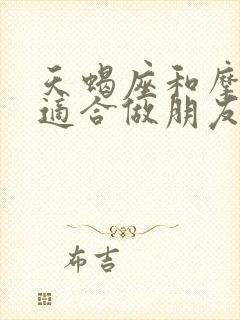 天蝎座和摩
適合做朋友
布吉